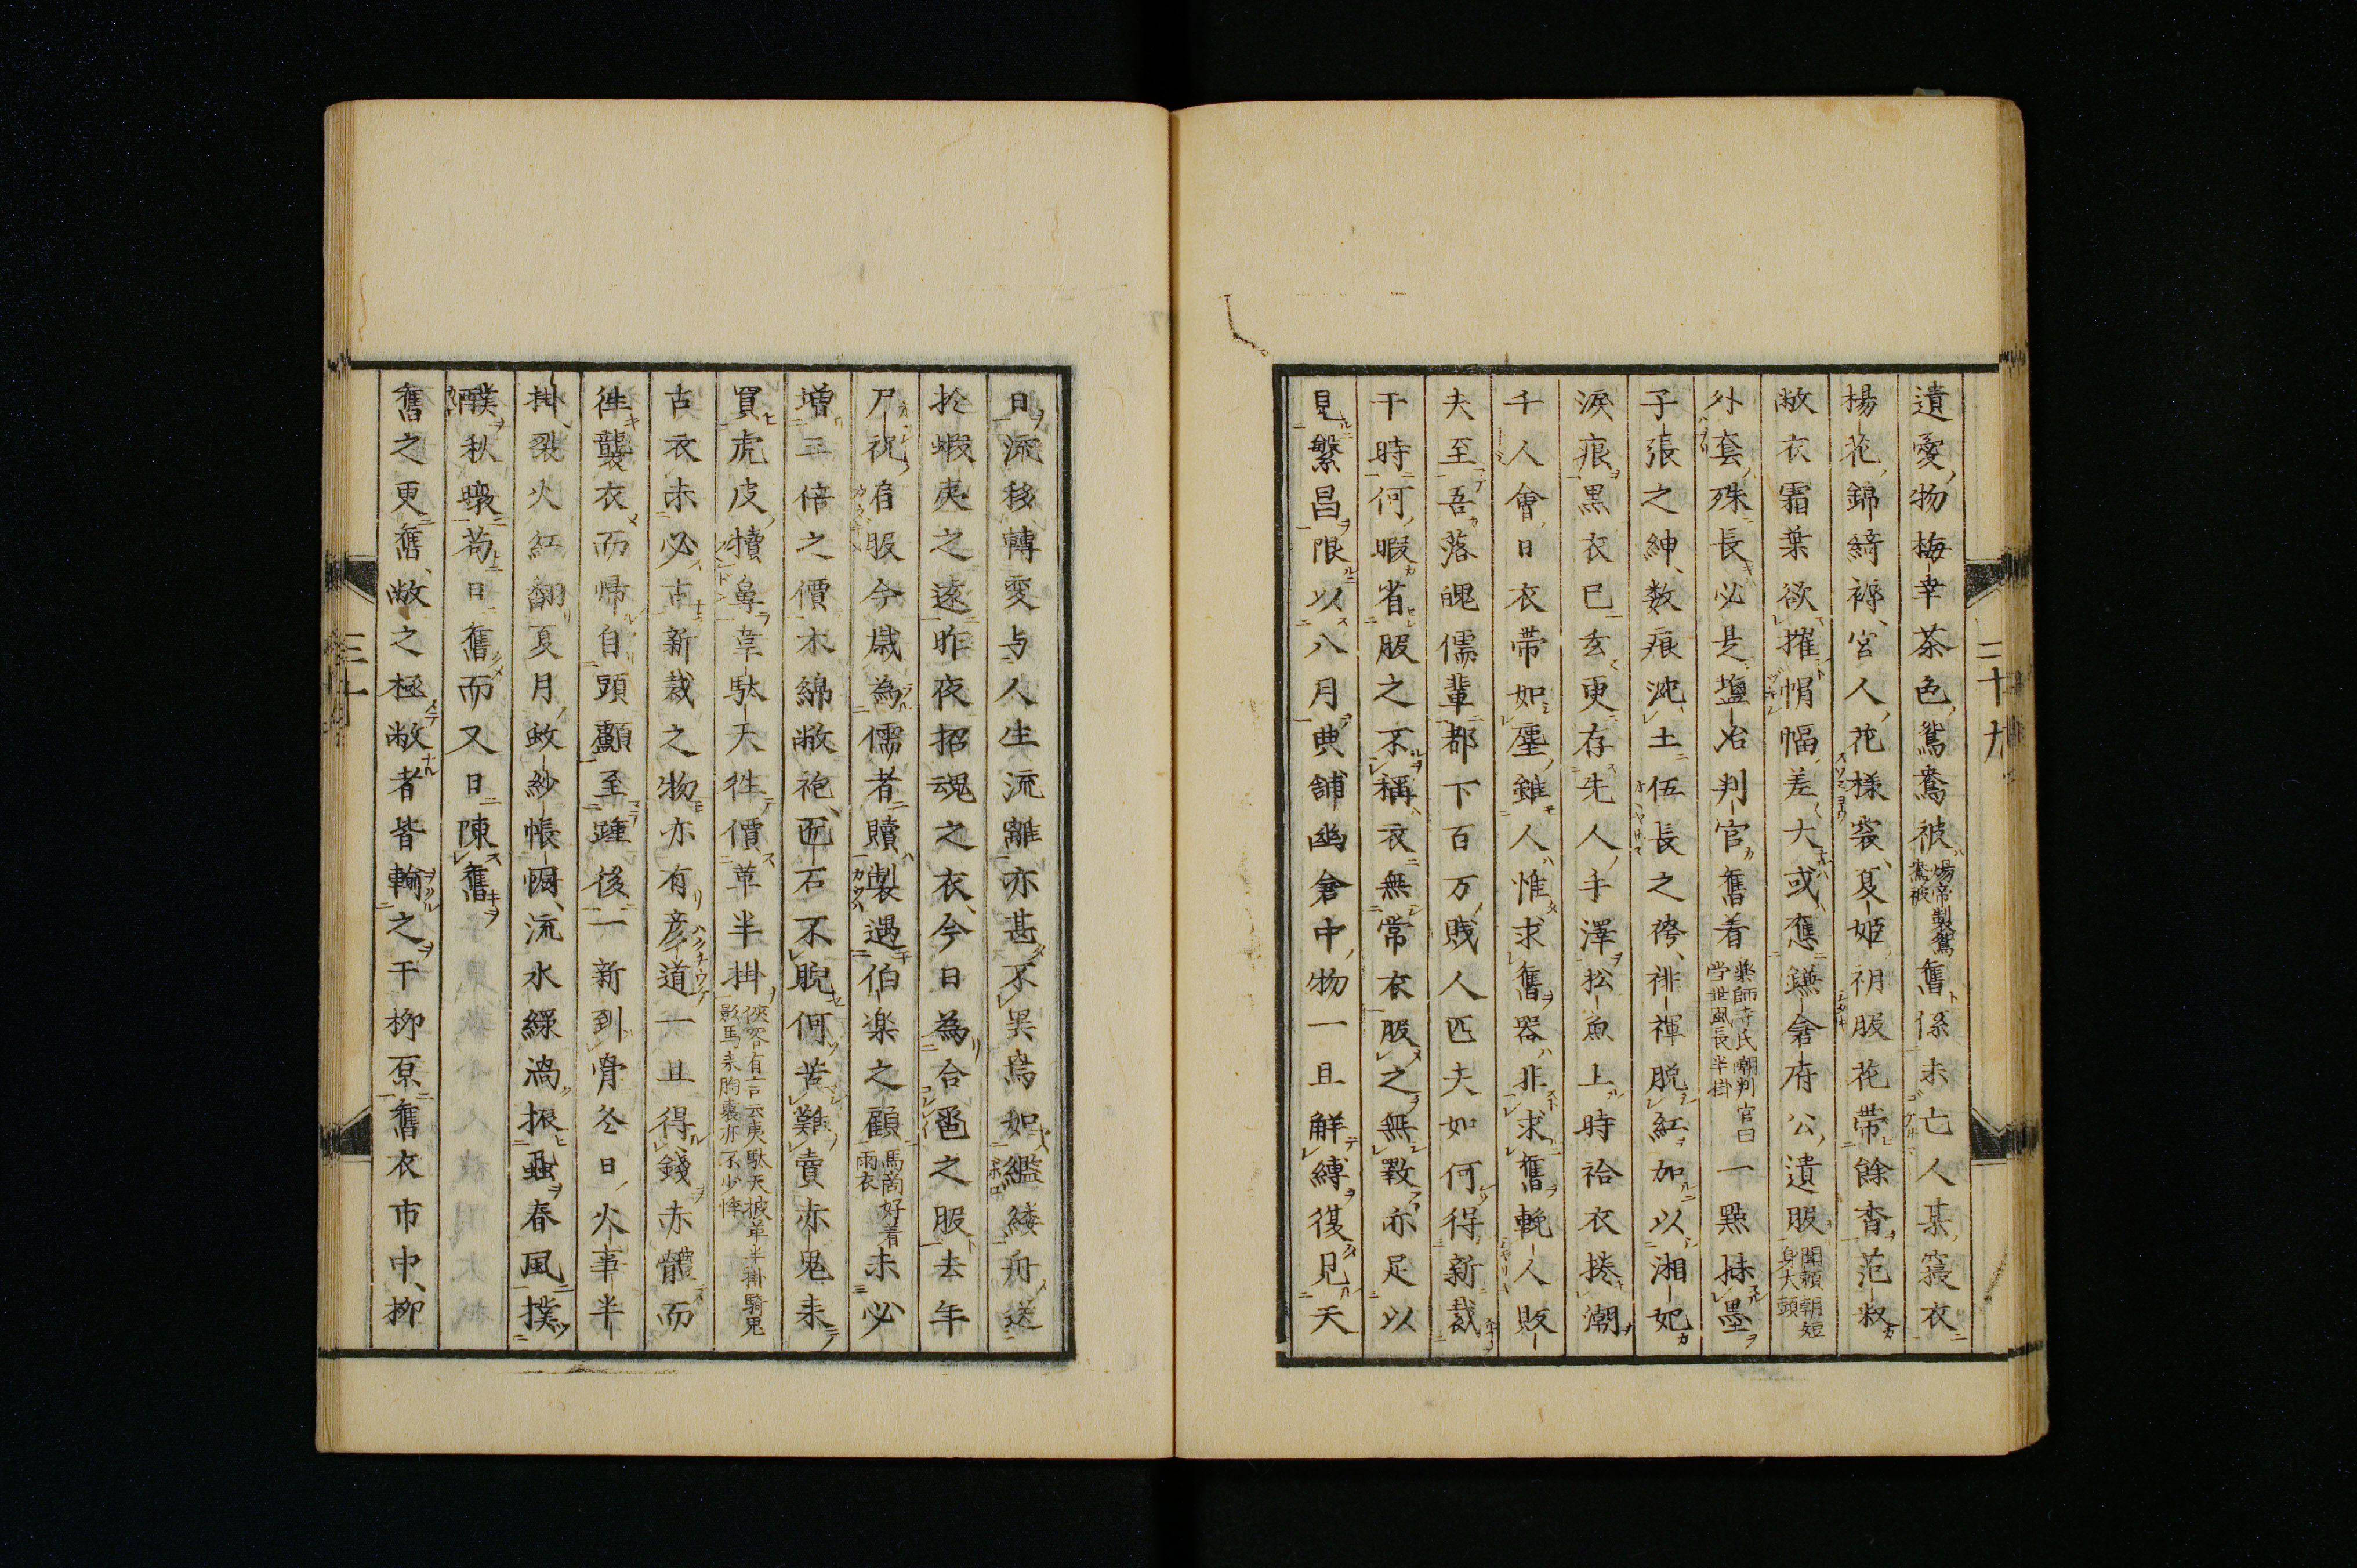 遺愛物梅幸茶色鴛鴦被煬帝製鴛鴦被舊係未亡人某寢衣
楊花錦綺褥宮人花様裳夏姫衵服花帯餘香范叔
敝衣霜葉欲摧帽幅差大或應鎌倉府公遺服聞頼朝短身大頭
外套殊長必是塩冶判官舊着薬師寺氏嘲判官曰当世風長半掛一點抹墨
子張之紳数痕沈土伍長之袴褌脱紅加以湘妃
涙痕黒衣已玄更存先人手澤松魚上時袷衣捲潮
千人會日衣帯如塵雖人惟求舊器非求舊輓人販
夫至吾落魄儒輩都下百万賤人匹夫如何得新裁
干時何暇省服之不稱衣無常衣服之無斁亦足以
見繁昌限以八月典舗幽倉中物一旦解縛復見天
二十九
日流移轉変与人生流離亦甚不異烏如繿縷舟送
於蝦夷之遠昨夜招魂之衣今日為合卺之服去年
尸祝有服今歳為儒者贖製遇伯楽之顧馬商好着雨衣未必
増三倍之價木綿敝袍匹石不脱何苦難賣赤鬼来
買虎皮犢鼻韋駄天徃價革半掛俠客有言云夷駄天披革半掛騎鬼影馬来胸裏亦不少悸
古衣未必古新裁之物亦有彦道一旦得錢赤體而
徃襲衣而帰自頭顱至踵後一新到骨冬日火事半
掛裂火紅翻夏月蚊紗帳幮流水緑渦振蝨春風撲
醭秋曝苟日舊而又日陳舊
舊之更舊敝之極敝者皆輸之干柳原舊衣市中柳
三十